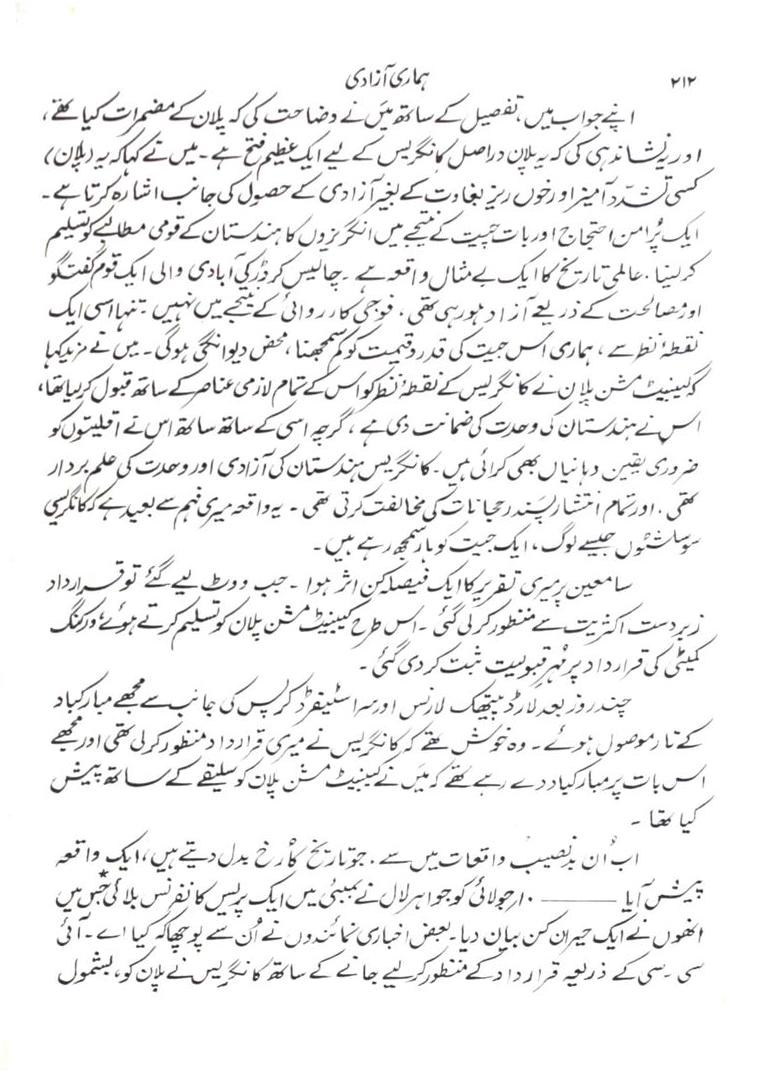 ۲۱۲
ہماری آزادی
اپنے جواب میں، تفصیل کے ساتھ میَں نے وضاحت کی کہ پلان کے مضمرات کیا تھے،
اور یہ نشاندہی کی کہ یہ پلان دراصل کانگریس کے لیے ایک عظیم فتح ہے۔ میں نے کہا کہ یہ (پلان)
کسی تشدّد آمیز اور خوں ریز بغاوت کے بغیر آزادی کے حصول کی جانب اشارہ کرتا ہے۔
ایک پُرامن احتجاج اور بات چیت کے نتیجے میں انگریزوں کا ہندستان کے قومی مطالبے کو تسلیم
کرلینا، عالمی تاریخ کا ایک بے مثال واقعہ ہے۔ چالیس کروڑ کی آبادی والی ایک قوم گفتگو
اور مصالحت کے ذریعے آزاد ہو رہی تھی، فوجی کارروائی کے نتیجے میں نہیں۔ تنہا اسی ایک
نقطۂ نظر سے، ہماری اس جیت کی قدر و قیمت کو کم سمجھنا، محض دیوانگی ہوگی۔ میں نے مزید کہا
کہ کیبنیٹ مشن پلان نے کانگریس کے نقطۂ نظر کو اس کے تمام لازمی عناصر کے ساتھ قبول کرلیا تھا،
اس نے ہندستان کی وحدت کی ضمانت دی ہے، گرچہ اسی کے ساتھ ساتھ اس نے اقلیتوں کو
ضروری یقین دہانیاں بھی کرائی ہیں۔ کانگریس ہندستان کی آزادی اور وحدت کی علم بردار
تھی، اور تمام انتشار پسند رحجانات کی مخالفت کرتی تھی۔ یہ واقعہ میری فہم سے بعید ہے کہ کانگریسی
سوشلسٹوں جیسے لوگ، ایک جیت کو ہار سمجھ رہے ہیں۔
سامعین پر میری تقریر کا ایک فیصلہ کن اثر ہوا۔ جب ووٹ لیے گئے تو قرارداد
زبردست اکثریت سے منظور کرلی گئی۔ اس طرح کیبنیٹ مشن پلان کو تسلیم کرتے ہوئے، ورکنگ
کمیٹی کی قرارداد پر مُہرِ قبولیت ثبت کردی گئی۔
چند روز بعد لارڈ پیتھک لارنس اور سر اسٹیفرڈ کرپس کی جانب سے مجھے مبارکباد
کے تار موصول ہوئے۔ وہ خوش تھے کہ کانگریس نے میری قرارداد منظور کرلی تھی اور مجھے
اس بات پر مبارکباد دے رہے تھے کہ میَں نے کیبنیٹ مشن پلان کو سلیقے کے ساتھ پیش
کیا تھا۔
اب اُن بدنصیب واقعات میں سے، جو تاریخ کا رُخ بدل دیتے ہیں، ایک واقعہ
پیش آیا ——— ۱۰؍ جولائی کو جواہر لال نے بمبئی میں ایک پریس کانفرنس بلائی* جس میں
انھوں نے ایک حیران کن بیان دیا۔ بعض اخباری نمائندوں نے اُن سے پوچھا کہ کیا اے۔ آئی
سی۔ سی کے ذریعہ قرارداد کے منظور کرلیے جانے کے ساتھ کانگریس نے پلان کو، بشمول